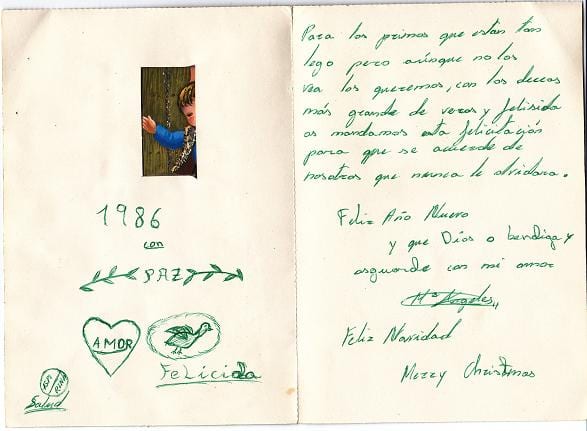 1986
con
PAZ
AMOR
Felicida
ASPI
RINA
Salud
Para los primos que están tan
lego pero aúnque no los
vea los queremos, con los deceos
más grande de veros y felisida
os mandamos esta felicitación
para que se acuerde de
nosotros que nunca le olvidara.
Feliz Año Nuevo
y que Dios o bendiga y
osguarde con mi amor
Mª Angeles,,
Feliz Navidad
Merry Christmas